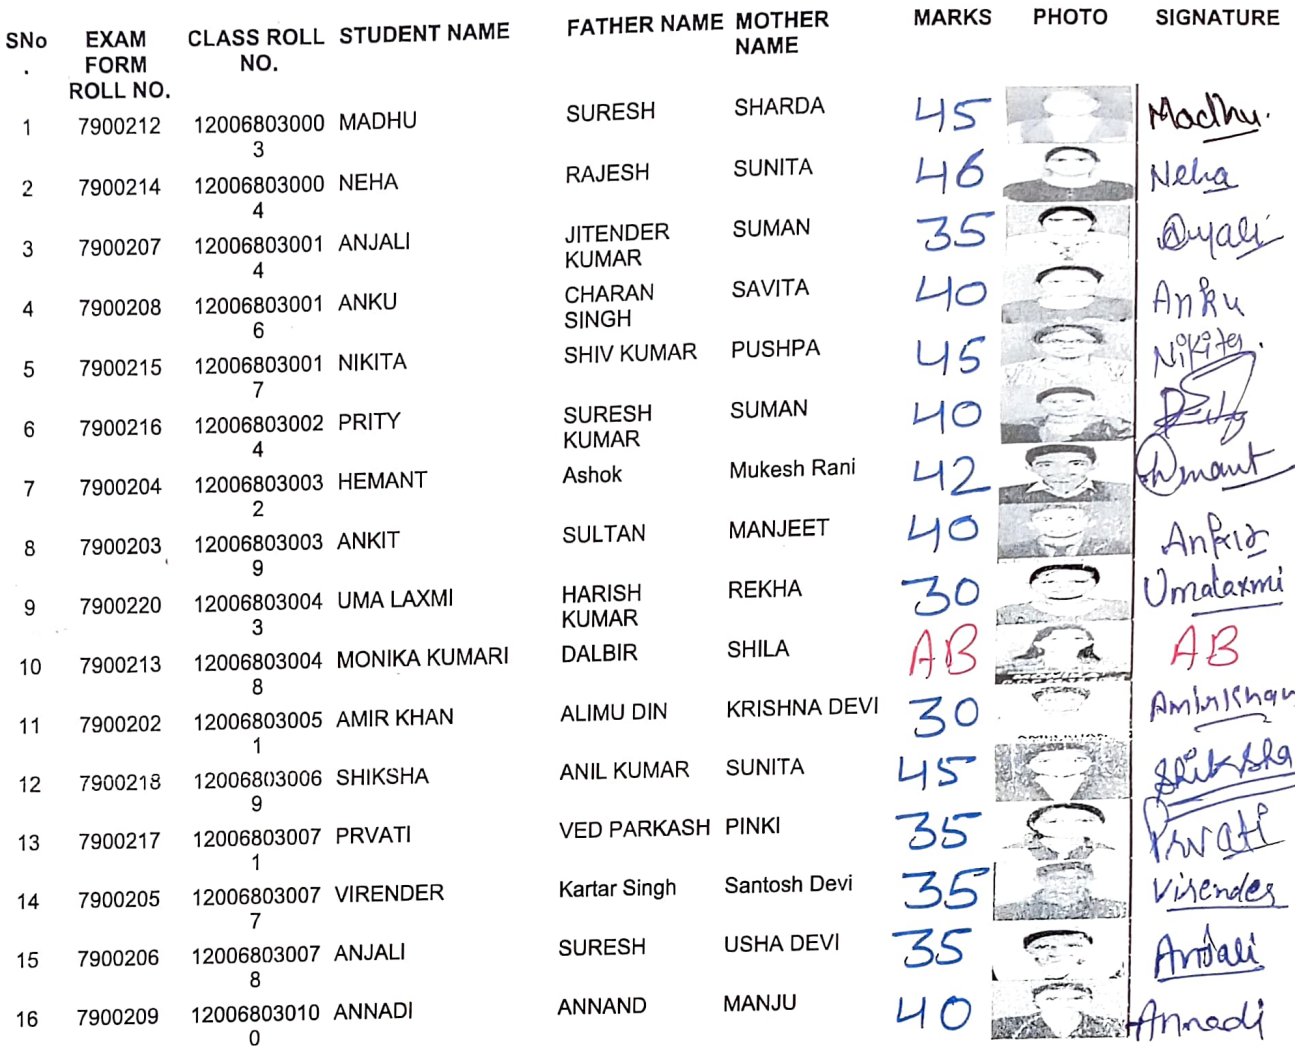 SNo. EXAM FORM ROLL NO. CLASS ROLL NO. STUDENT NAME FATHER NAME MOTHER NAME MARKS PHOTO SIGNATURE
1 7900212 120068030003 MADHU SURESH SHARDA 45 Madhu.
2 7900214 120068030004 NEHA RAJESH SUNITA 46 Neha
3 7900207 120068030014 ANJALI JITENDER KUMAR SUMAN 35
4 7900208 120068030016 ANKU CHARAN SINGH SAVITA 40 Anku
5 7900215 120068030017 NIKITA SHIV KUMAR PUSHPA 45 Nikita.
6 7900216 120068030024 PRITY SURESH KUMAR SUMAN 40
7 7900204 120068030032 HEMANT Ashok Mukesh Rani 42
8 7900203 120068030039 ANKIT SULTAN MANJEET 40 Ankit
9 7900220 120068030043 UMA LAXMI HARISH KUMAR REKHA 30 Umalaxmi
10 7900213 120068030048 MONIKA KUMARI DALBIR SHILA AB AB
11 7900202 120068030051 AMIR KHAN ALIMU DIN KRISHNA DEVI 30 AmirKhan
12 7900218 120068030069 SHIKSHA ANIL KUMAR SUNITA 45 Shiksha
13 7900217 120068030071 PRVATI VED PARKASH PINKI 35 Prvati
14 7900205 120068030077 VIRENDER Kartar Singh Santosh Devi 35 Virender
15 7900206 120068030078 ANJALI SURESH USHA DEVI 35 Anjali
16 7900209 120068030100 ANNADI ANNAND MANJU 40 Annadi